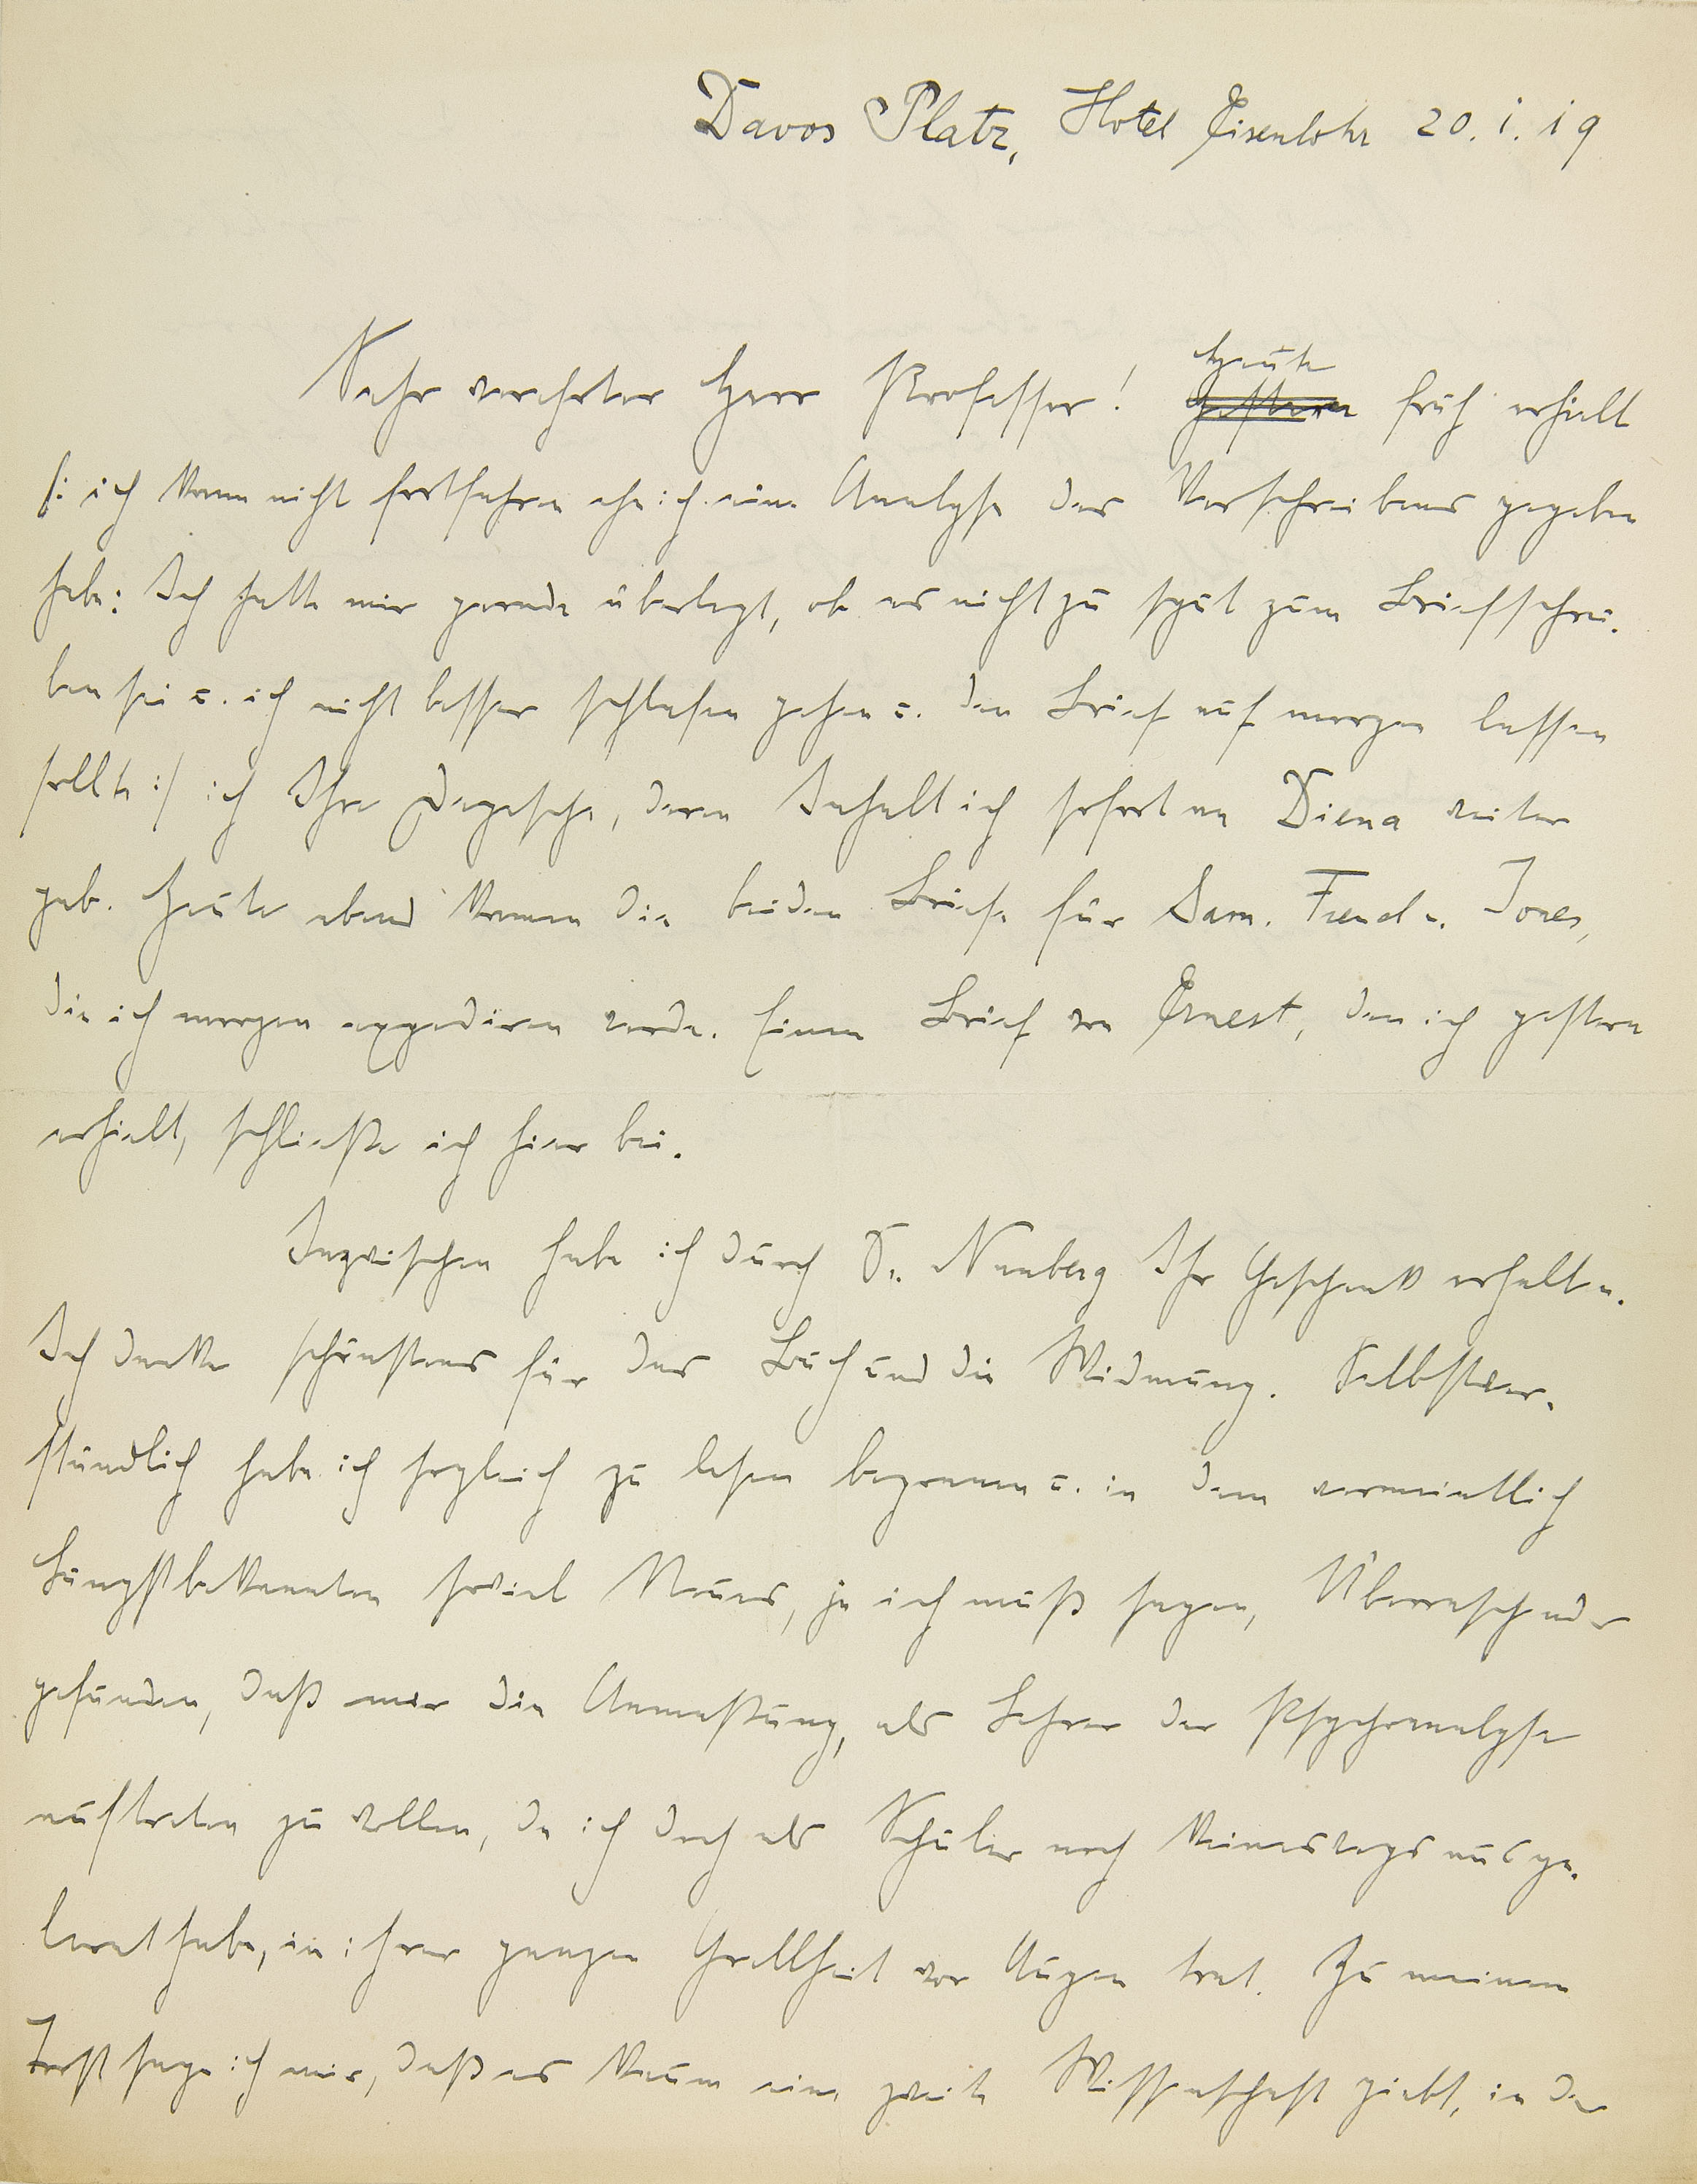 Davos Platz, Hotel Eisenlohr 20. I. 19
Heute
Sehr verehrter Herr Professor! Gestern früh erhielt
/: ich kann nicht fortfahren ehe ich eine Analyse des Verschreibens gegeben
habe: Ich hatte mir gerade überlegt, ob es nicht zu spät zum Briefschrei-
ben sei u. ich nicht besser schlafen gehen u. den Brief auf morgen lassen
sollte :/ ich Ihre Depesche, deren Inhalt ich sofort an Diena weiter
gab. Heute abend kamen die beiden Briefe für Sam. Freud u. Jones,
die ich morgen expedieren werde. Einen Brief von Ernest, den ich gestern
erhielt, schließe ich hier bei.
Inzwischen habe ich durch Dr. Nunberg Ihr Geschenk erhalten.
Ich danke schönstens für das Buch und die Widmung. Selbstver-
ständlich habe ich sogleich zu lesen begonnen u. in dem vermeintlich
Längstbekannten soviel Neues, ja ich muß sagen, Überraschendes
gefunden, daß mir die Anmaßung, als Lehrer der Psychoanalyse
auftreten zu wollen, da ich doch als Schüler noch keineswegs ausge-
lernt habe, in ihrer ganzen Grellheit vor Augen trat. Zu meinem
Trost sage ich mir, daß es kaum eine zweite Wissenschaft giebt, in der